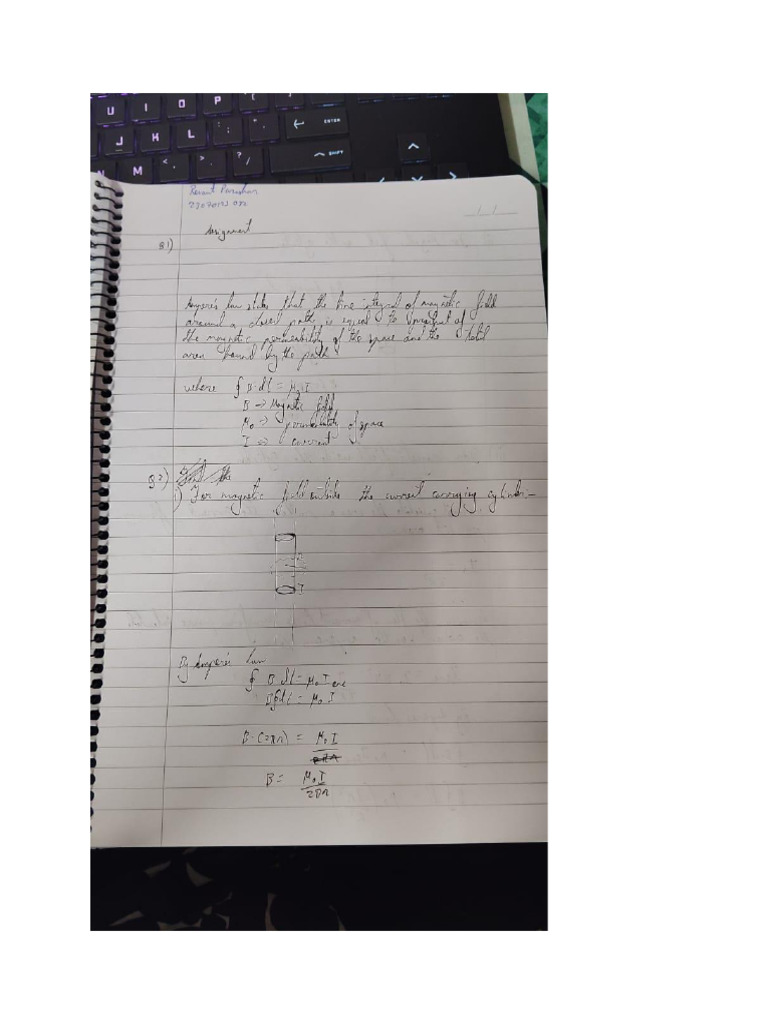 U I O P
J K L : ; " ' ENTER
N M < , > . ? / SHIFT
Assignment
Q 1)
Ampere's law states that the line integral of magnetic field
around a closed path is equal to the product of
the magnetic permeability of the space and the total
area bound by the path.
where ∮ B·dl = μ₀I
B → Magnetic field
μ₀ → permeability of space
I → current
Q 2)
i) For magnetic field outside the current carrying cylinder:-
I
By Ampere's law
∮ B·dl = μ₀ I enc
B∮dl = μ₀ I
B·(2πr) = μ₀ I
B = μ₀ I / 2πr